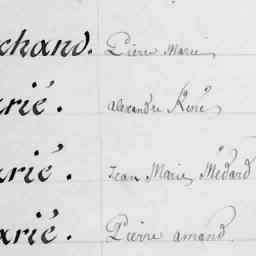 chand. Pierre Marie
arié. alexandre René
arié. Jean Marie Médard
arié. Pierre amand